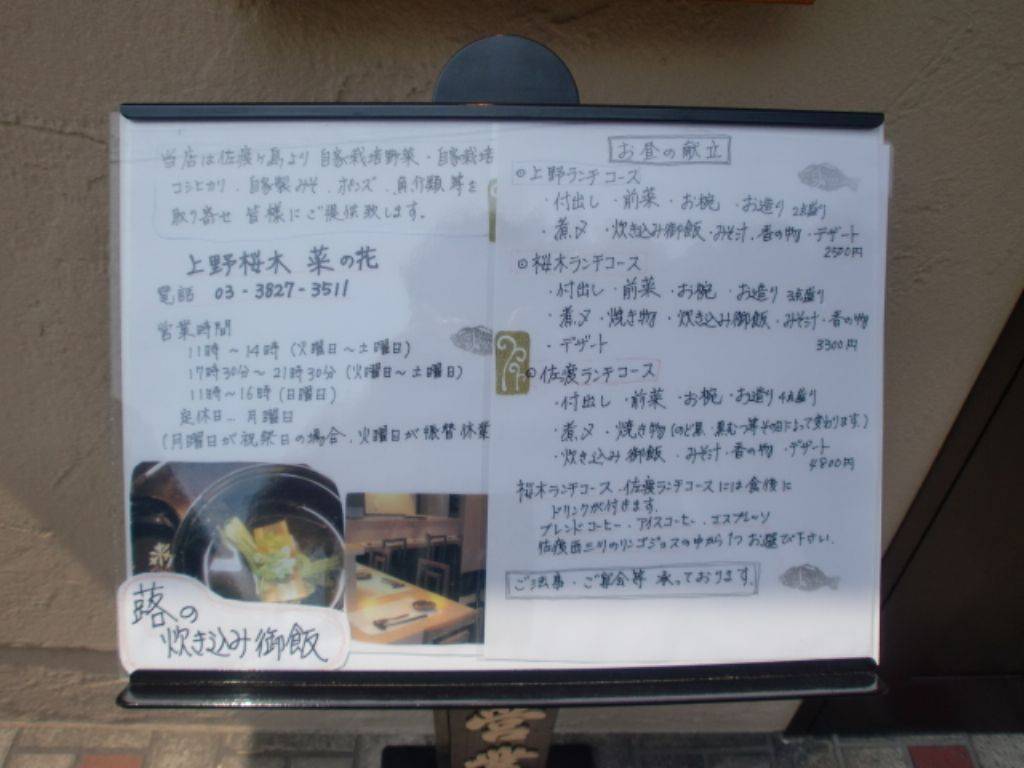 当店は佐渡ヶ島より 自家栽培野菜・自家栽培
コシヒカリ、自家製みそ、ポンズ、魚介類等を
取り寄せ 皆様にご提供致します。
上野桜木 菜の花
電話 03-3827-3511
営業時間
11時～14時（火曜日～土曜日）
17時30分～21時30分（火曜日～土曜日）
11時～16時（日曜日）
定休日… 月曜日
（月曜日が祝祭日の場合、火曜日が振替休業
蕗の
炊き込み御飯
お昼の献立
◎上野ランチコース
・付出し・前菜・お椀・お造り 2点盛り
・煮〆・炊き込み御飯・みそ汁・香の物・デザート
2500円
◎桜木ランチコース
・付出し・前菜・お椀・お造り 3点盛り
・煮〆・焼き物・炊き込み御飯・みそ汁・香の物
・デザート 3300円
◎佐渡ランチコース
・付出し・前菜・お椀・お造り 4点盛り
・煮〆・焼き物（のど黒、黒むつ等その日によって変わります）
・炊き込み御飯・みそ汁・香の物・デザート
4800円
桜木ランチコース、佐渡ランチコースには食後に
ドリンクが付きます。
ブレンドコーヒー、アイスコーヒー、エスプレッソ
佐渡西三川のリンゴジュースの中から1つお選び下さい。
ご法事・ご宴会等 承っております。
営業